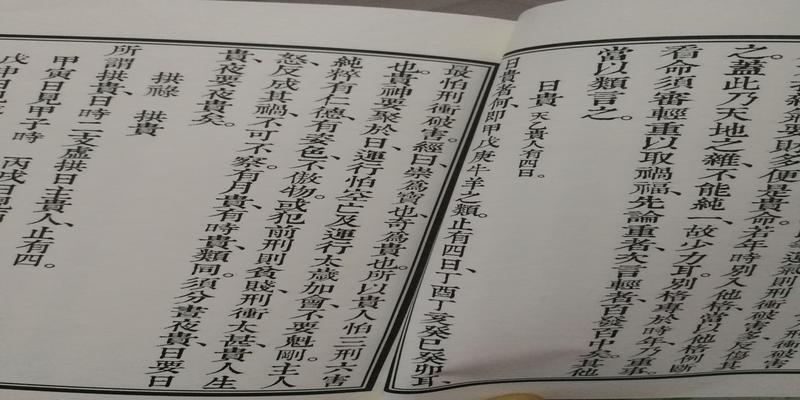 之。蓋此乃天地之雜、不能純一、故少力耳。別格專於時年力重事、
看命須審輕重以取禍福、先論重者、次言輕者、百發百中矣。其他
當以類言之。
日貴 天乙貴人有四日。
日貴者何、即甲戊庚牛羊之類。止有四日、丁酉丁亥癸巳癸卯耳、
最怕刑衝破害。經曰、崇為寶也、奇為貴也。所以貴人怕三刑六害
也。貴神要聚於日、運行怕空亡、及運行太歲加會、不要魁剛。主人
純粹、有仁德、有姿色、不傲物。或犯前刑則貧賤、刑衝太甚、貴人生
怒、反成其禍、不可不察。有月貴、有時貴、類同。須分晝夜貴、日要日
貴、夜要夜貴矣。
拱祿 拱貴
所謂拱貴、日時二支虛拱日主貴人、止有四。
甲寅日見甲子時